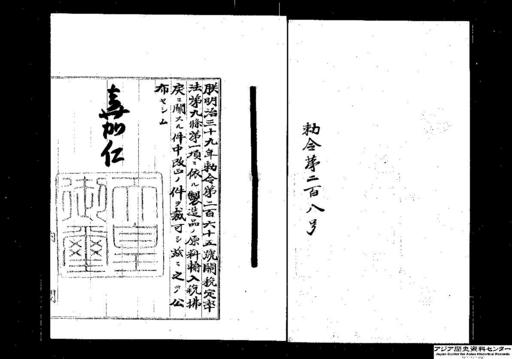 勅令第二百八号
朕明治三十九年勅令第二百六十五號關稅定率
法第九條第一項ニ依ル製造品ノ原料輸入稅拂
戾ニ關スル件中改正ノ件ヲ裁可シ玆ニ之ヲ公
布セシム
嘉仁
天皇
御璽
アジア歴史資料センター
Japan Center for Asian Historical Records